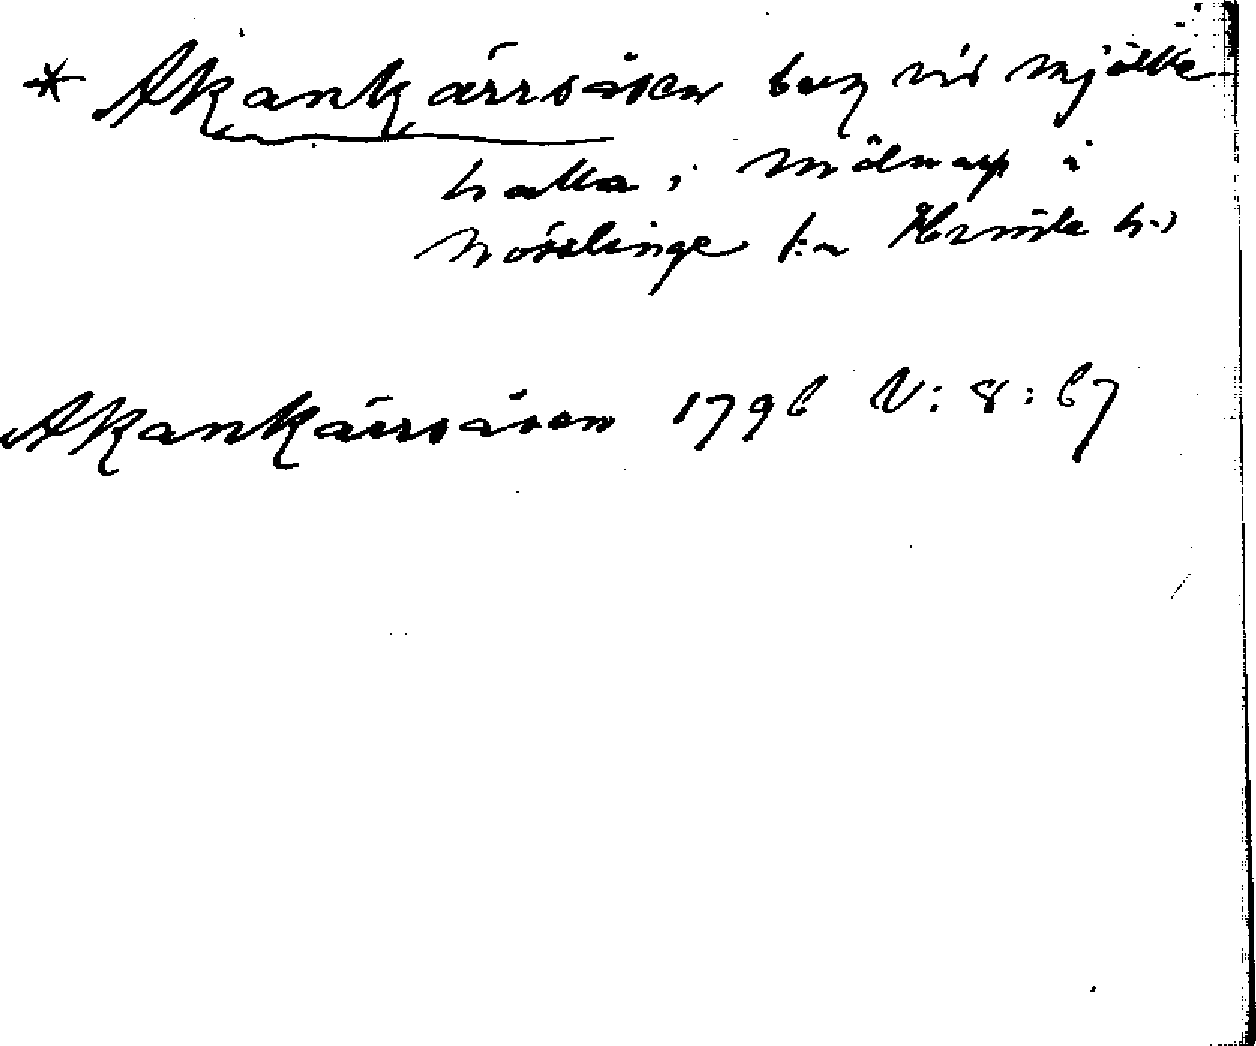 * Akankärrsåsen berg vid Mjölke-
halla, i Mölnarp i
Nösslinge sn Himle hd
Akankärrsåsen 1796 V: 8: 67